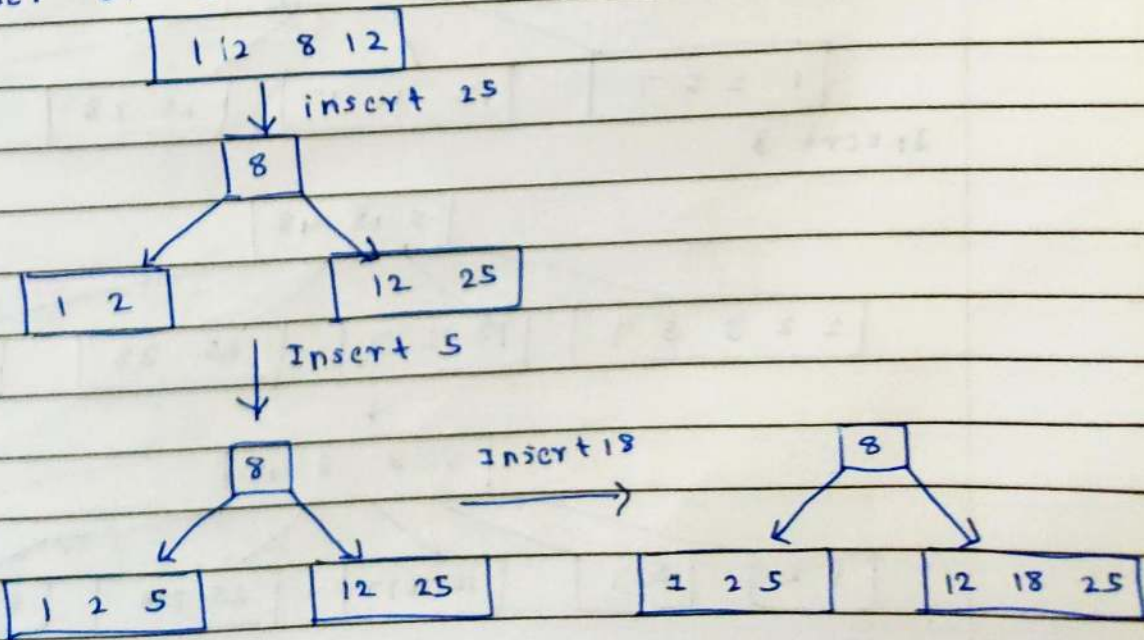 1 2 8 12
insert 25
8
1 2 12 25
Insert 5
8 Insert 18 8
1 2 5 12 25 1 2 5 12 18 25